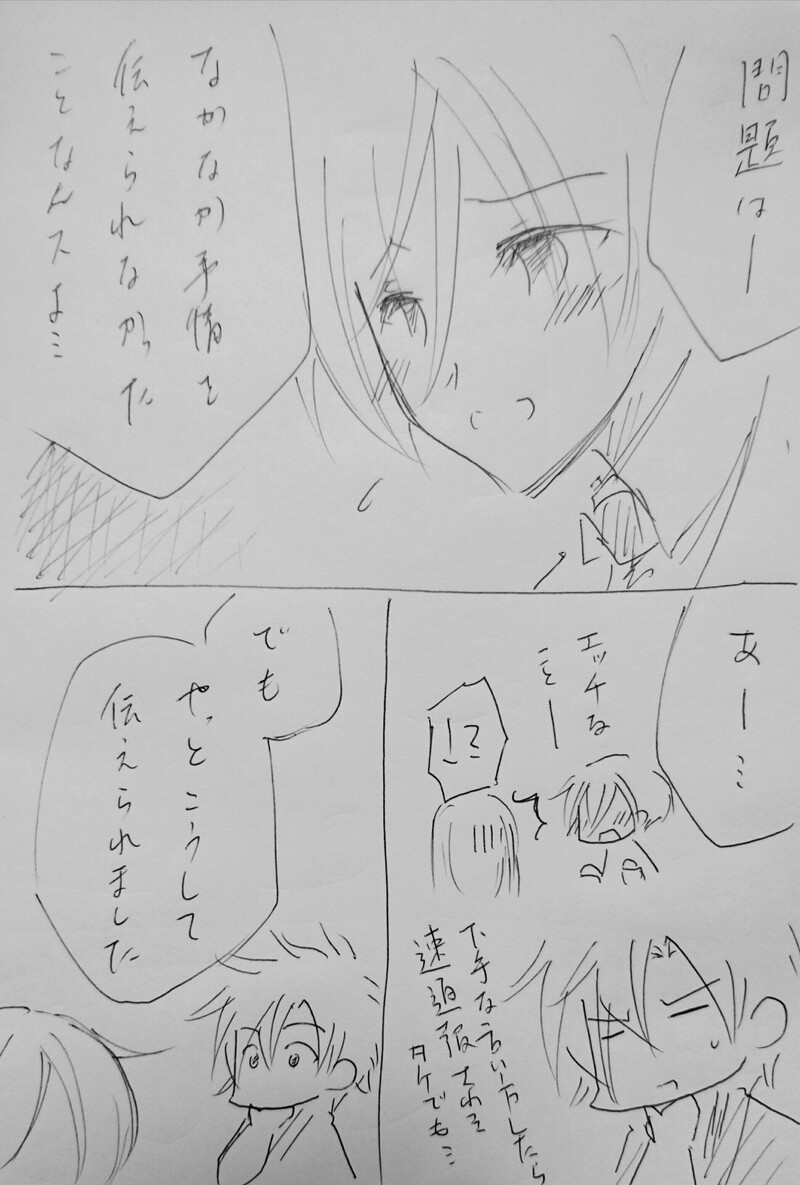 問題はー
なかなか事情を
伝えられなかった
ことなんスよ…
あー…
エッチな
ことー
!?
下手な言い方したら
速通報されそ
でも
やっとこうして
伝えられました